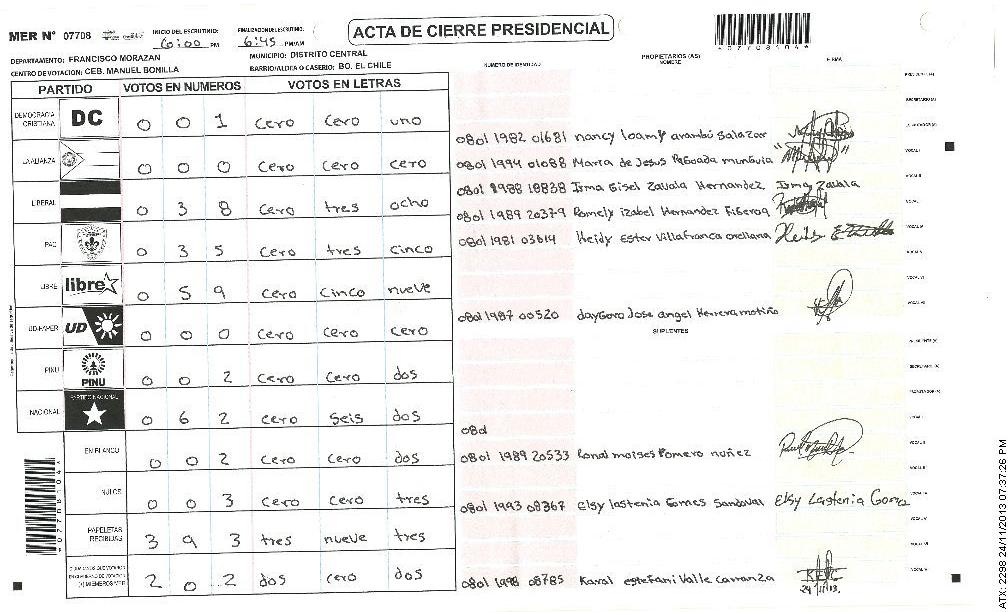 MER N° 07708
INICIO DEL ESCRUTINIO: 6:00 PM
FINALIZACION DEL ESCRUTINIO: 6:45 PM/AM
ACTA DE CIERRE PRESIDENCIAL
*07708104*
DEPARTAMENTO: FRANCISCO MORAZAN
MUNICIPIO: DISTRITO CENTRAL
CENTRO DE VOTACION: CEB. MANUEL BONILLA
BARRIO/ALDEA O CASERIO: BO. EL CHILE
NUMERO DE IDENTIDAD
PROPIETARIOS (AS)
NOMBRE
FIRMA
PARTIDO VOTOS EN NUMEROS VOTOS EN LETRAS
DEMOCRACIA CRISTIANA DC 0 0 1 cero cero uno
LA ALIANZA 0 0 0 cero cero cero
LIBERAL 0 3 8 cero tres ocho
PAC 0 3 5 cero tres cinco
LIBRE libre 0 5 9 cero cinco nueve
UD-FAPER UD 0 0 0 cero cero cero
PINU PINU 0 0 2 cero cero dos
NACIONAL PARTIDO NACIONAL 0 6 2 cero seis dos
EN BLANCO 0 0 2 cero cero dos
NULOS 0 0 3 cero cero tres
PAPELETAS RECIBIDAS 3 9 3 tres nueve tres
2 0 2 dos cero dos
0801 1982 01681 nancy loamy arambú salazar
0801 1994 01088 Maria de Jesus Pagoada munguia
0801 1988 18838 Irma Gisel Zavala Hernandez Irma Zavala
0801 1989 20379 Romely izabel Hernandez Figeroa
0801 1981 03614 Heidy Ester Villafranca orellana
0801 1987 00520 daygoro Jose angel Herrera motiño
SUPLENTES
080
0801 1989 20533 Ronal moises Romero nuñez
0801 1993 08367 elsy lastenia Gomes Sandoval Elsy Lastenia Gomz
0801 1998 08785 Karol estefani Valle carranza
24/11/13.
*07708104*
ATX: 2298 24/11/2013 07:37:26 PM